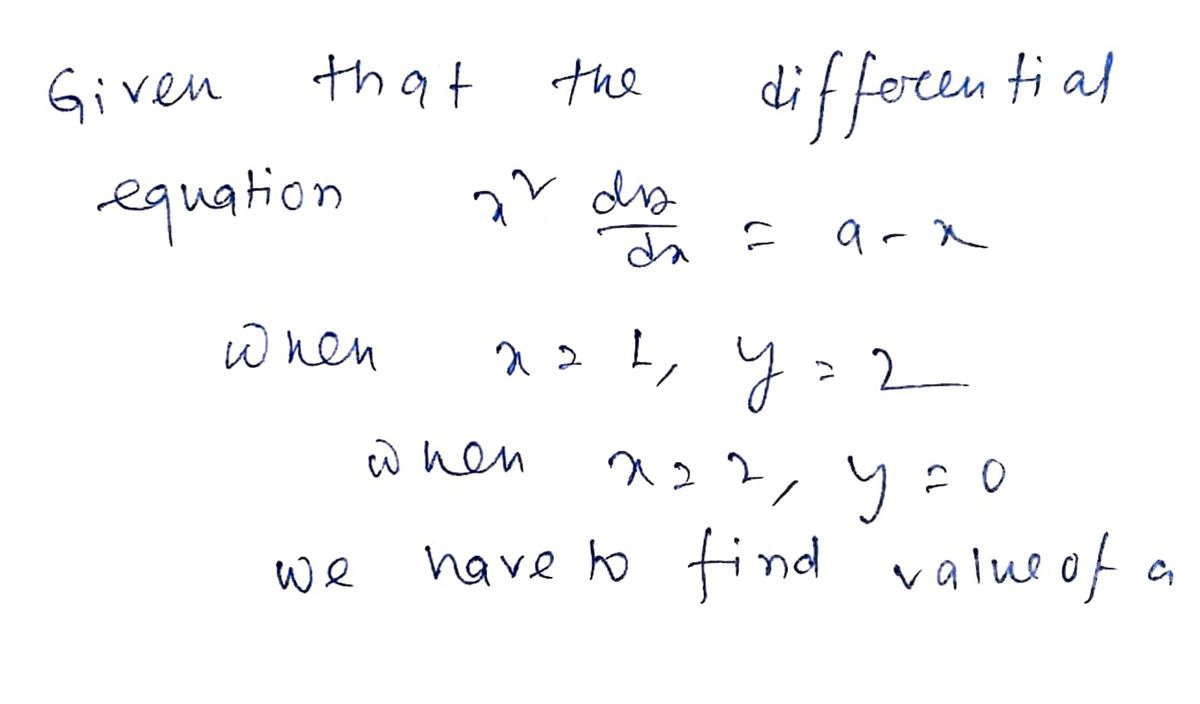 Given that the differential
equation x² dy/dx = a - x
when x = 1, y = 2
when x = 2, y = 0
we have to find value of a